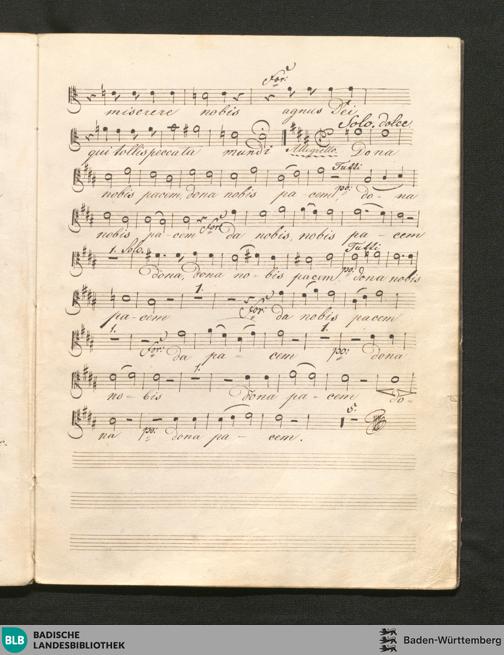 For:
miserere nobis agnus Dei
Solo. dolce
qui tollis peccata mundi Allegretto. Dona
Tutti
nobis pacem, dona nobis pacem po: do-na
nobis pa-cem For: da nobis, nobis pa-cem
1. Solo. Tutti
dona, dona no-bis pacem po: dona nobis
1.
pa-cem For: da nobis pacem
1. 1.
For: da pa-cem po: dona
1.
no-bis dona pa-cem do-
na po: dona pa-cem.
BLB BADISCHE LANDESBIBLIOTHEK
Baden-Württemberg